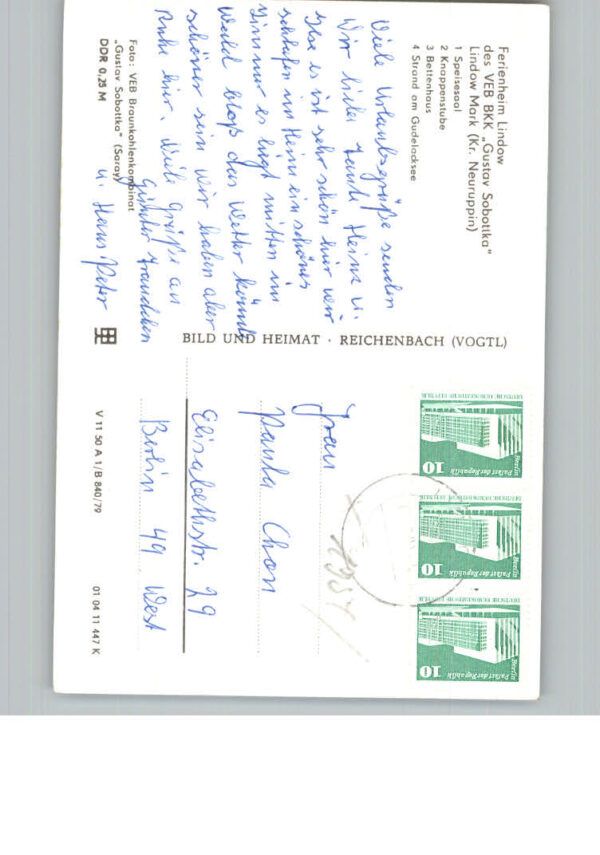 Ferienheim Lindow
des VEB BKK „Gustav Sobottka"
Lindow Mark (Kr. Neuruppin)
1 Speisesaal
2 Knappenstube
3 Bettenhaus
4 Strand am Gudelacksee
Viele Urlaubsgrüße senden
Wir liebe Tante Heinz u.
Ilse es ist sehr schön hier wir
schlafen im Heim ein schönes
Zimmer es liegt mitten im
Wald bloß das Wetter könnte
schöner sein wir haben aber
Ruhe hier. Viele Grüße an
Günter
u. Hans Peter
Foto: VEB Braunkohlenkombinat
„Gustav Sobottka" (Saray)
DDR 0,25 M
BILD UND HEIMAT · REICHENBACH (VOGTL)
DEUTSCHE DEMOKRATISCHE REPUBLIK
Berlin
Palast der Republik
10
DEUTSCHE DEMOKRATISCHE REPUBLIK
Berlin
Palast der Republik
10
DEUTSCHE DEMOKRATISCHE REPUBLIK
Berlin
Palast der Republik
10
Frau
Paula Chon
Elisabethstr. 29
Berlin 49 West
V 11 50 A 1/B 840/79
01 04 11 447 K